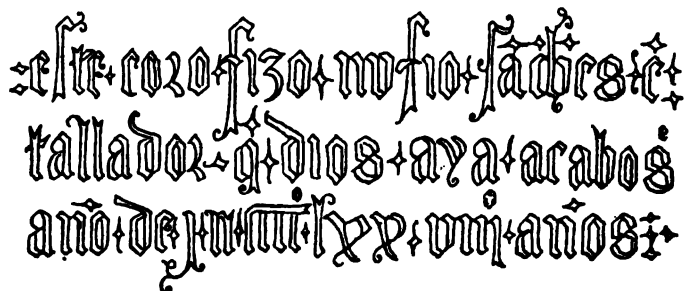 :este·coro·fizo·nufro·sāch̄es·ē:
tallador·q̄·dios·aya·acabosᵉ
año·de·j·m·iiiiº·lxx·viijº·años: